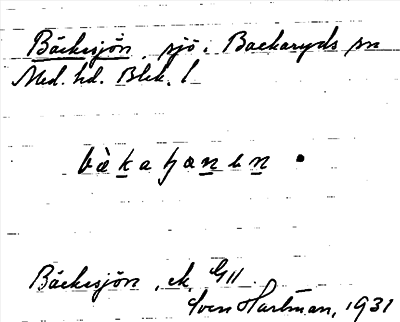 Bäckesjön, sjö i Backaryds sn
Med. hd. Blek. l
bàkahønen .
Bäckesjön, ek. G11
Sven Hartman, 1931